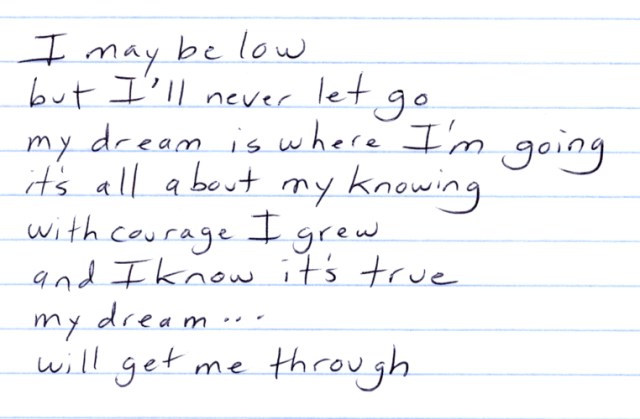 I may be low
but I'll never let go
my dream is where I'm going
it's all about my knowing
with courage I grew
and I know it's true
my dream...
will get me through